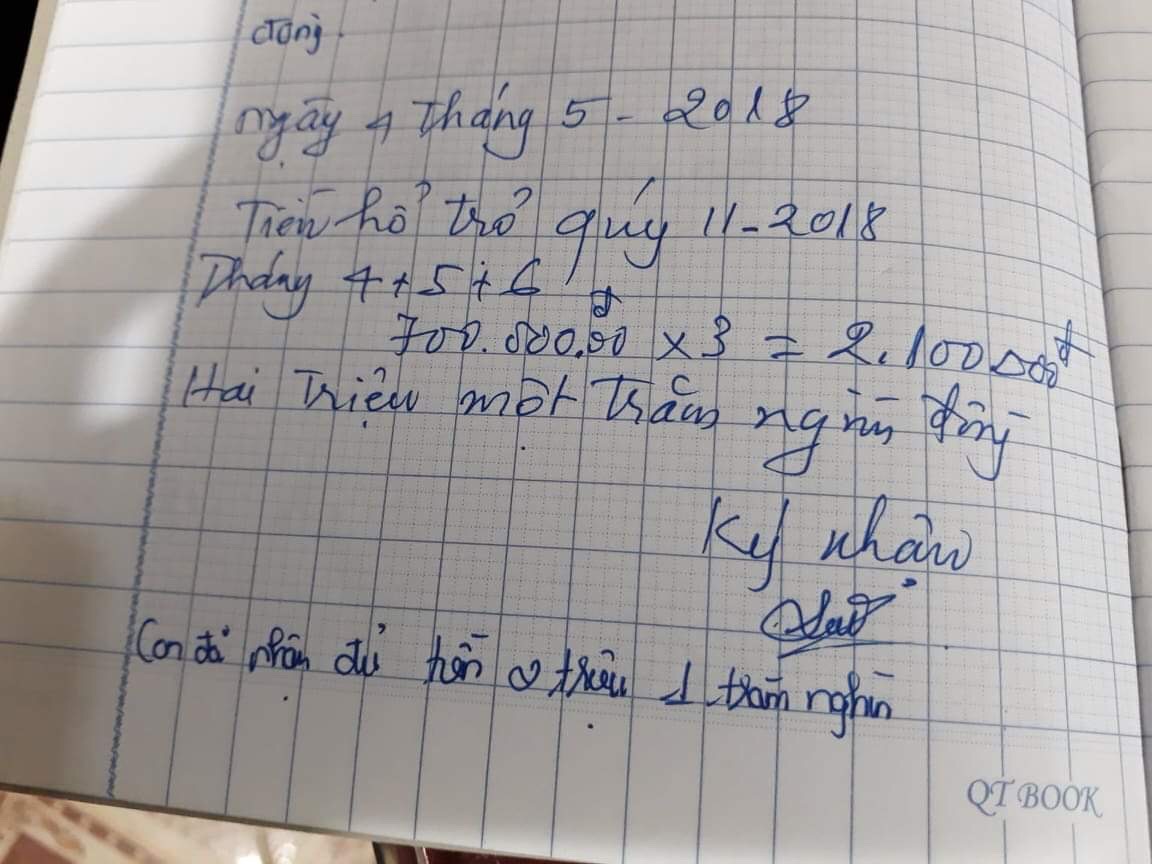 đồng.
ngày 4 tháng 5 - 2018
Tiền hổ trở quý 11 - 2018
Tháng 4 + 5 + 6
700.000.00đ x 3 = 2.100 000đ
Hai Triệu một Trăm nghìn đồng
Ký nhận
Con đả nhận đủ tiền 2 triệu 1 trăm nghìn
QT BOOK